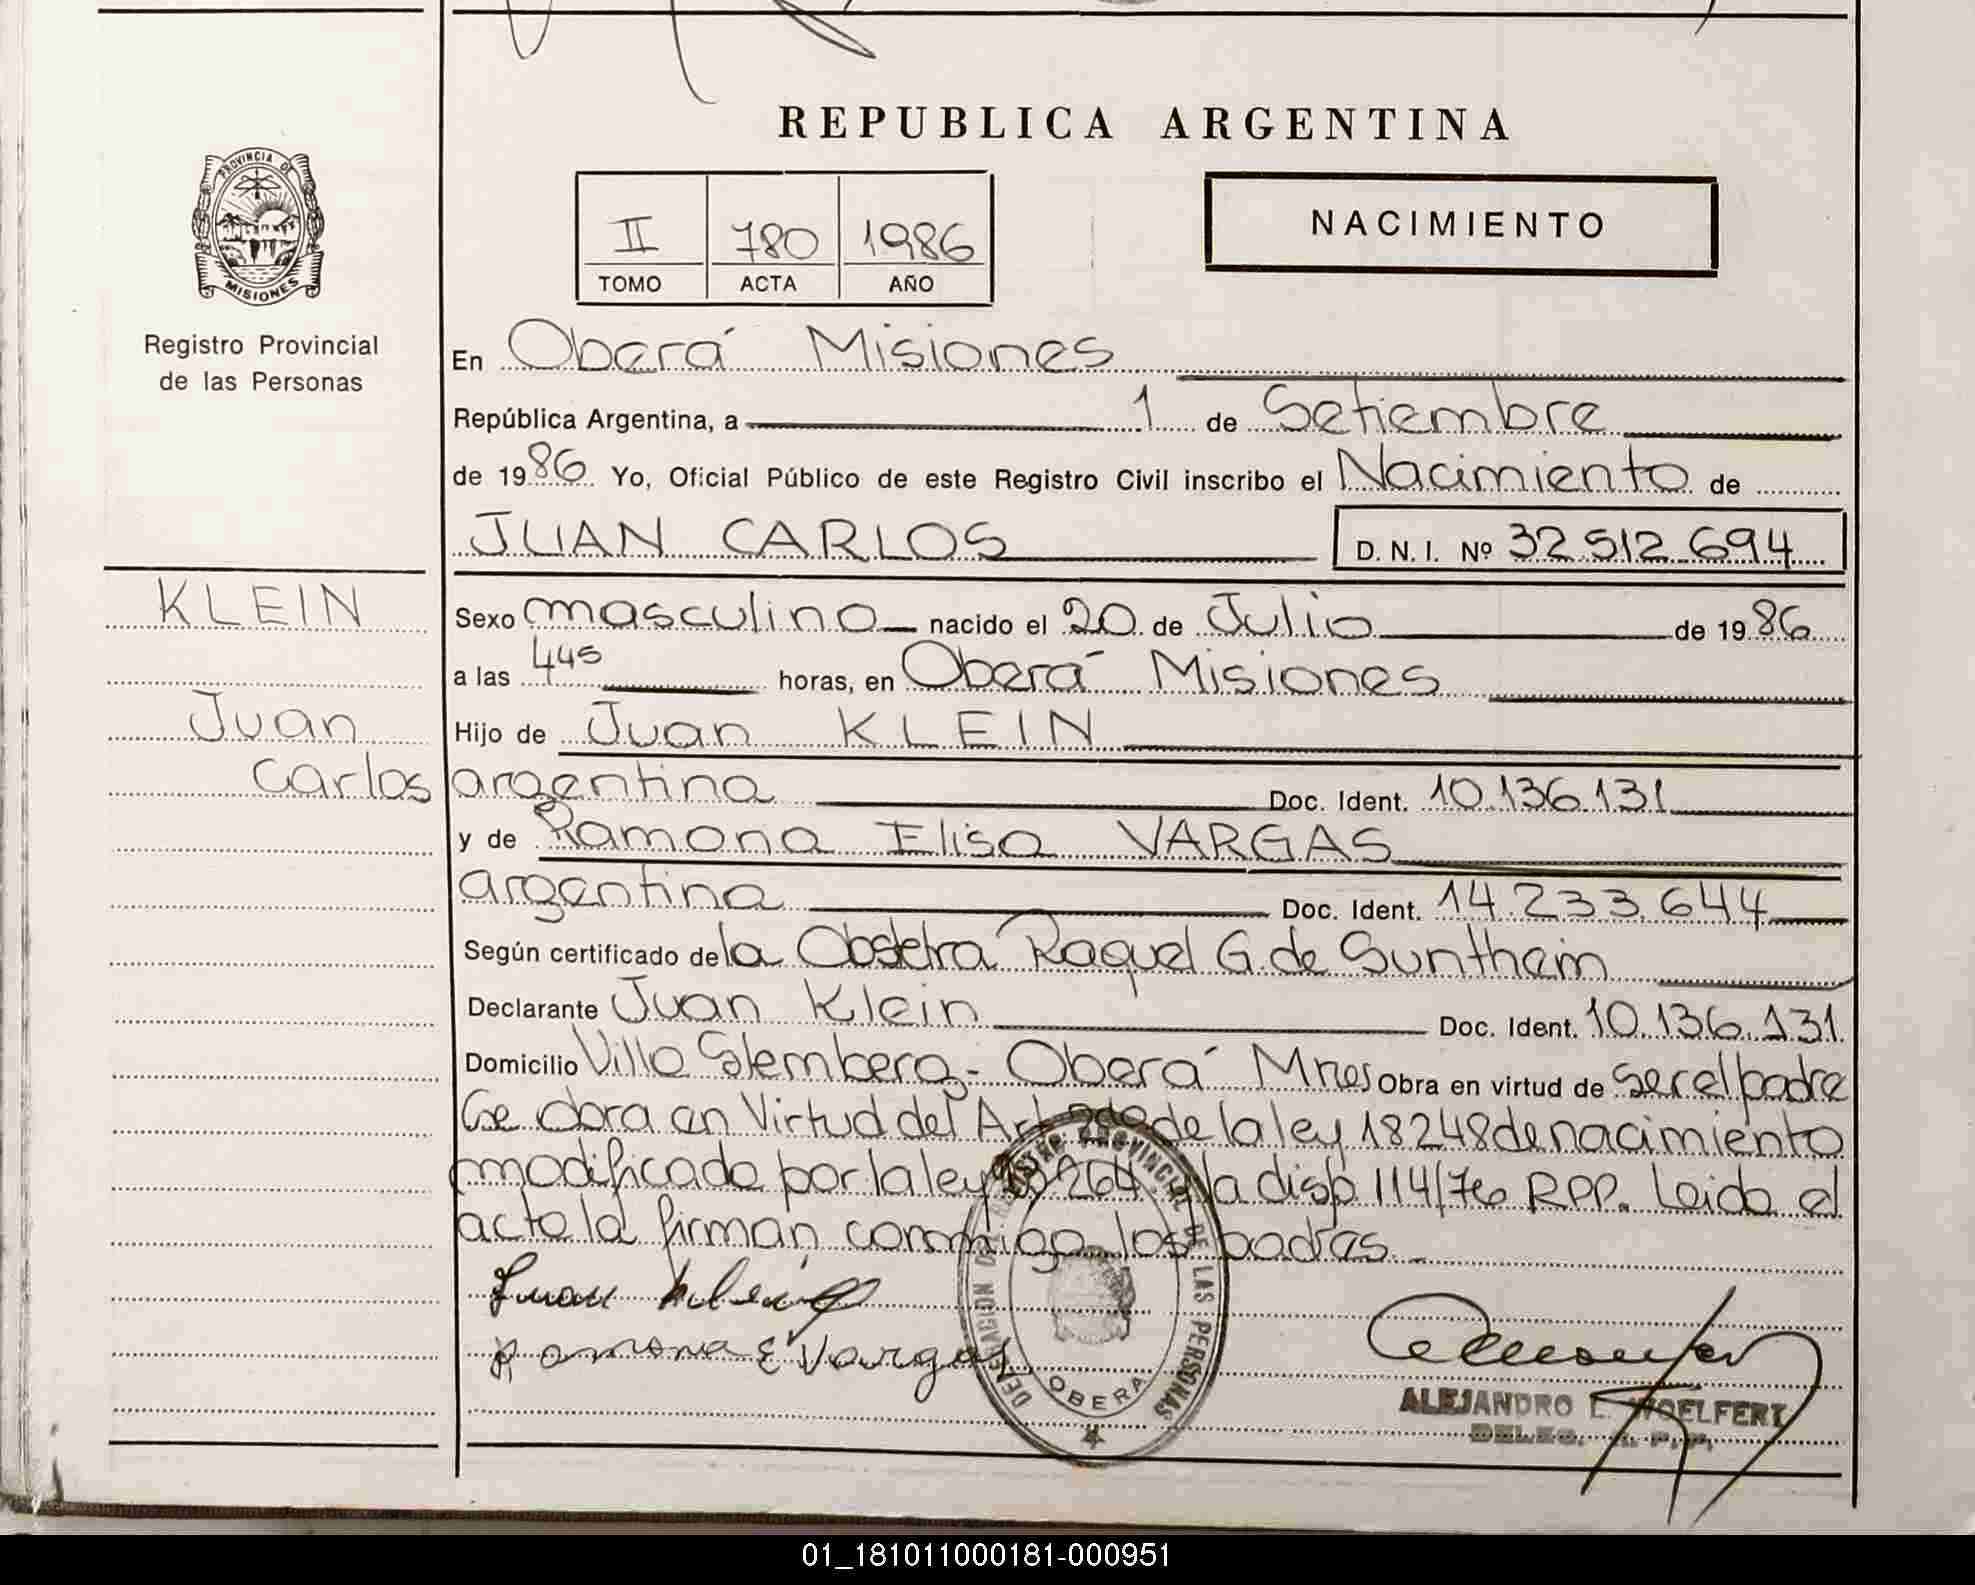 REPUBLICA ARGENTINA
PROVINCIA DE
MISIONES
Registro Provincial
de las Personas
II 780 1986
TOMO ACTA AÑO
NACIMIENTO
En Oberá Misiones
República Argentina, a 1 de Setiembre
de 1986 Yo, Oficial Público de este Registro Civil inscribo el Nacimiento de
JUAN CARLOS D. N. I. Nº 32.512.694
KLEIN
Juan
Carlos
Sexo masculino nacido el 20 de Julio de 1986
a las 445 horas, en Oberá Misiones
Hijo de Juan KLEIN
argentina Doc. Ident. 10.136.131
y de Ramona Elisa VARGAS
argentina Doc. Ident. 14.233.644
Según certificado de la Obstetra Raquel G. de Sunthein
Declarante Juan Klein Doc. Ident. 10.136.131
Domicilio Villa Stemberg - Oberá Mnes Obra en virtud de ser el padre
Se obra en Virtud del Art de la ley 18248 de nacimiento
modificado por la ley 264 y la disp 114/76 RPP. Leida el
acta la firman conmigo los padres
Juan Klein
Ramona E Vargas
DELEGACION DEL REGISTRO PROVINCIAL DE LAS PERSONAS
OBERA
ALEJANDRO L. WOELFERT
DELEG. R. P. P.
01_181011000181-000951